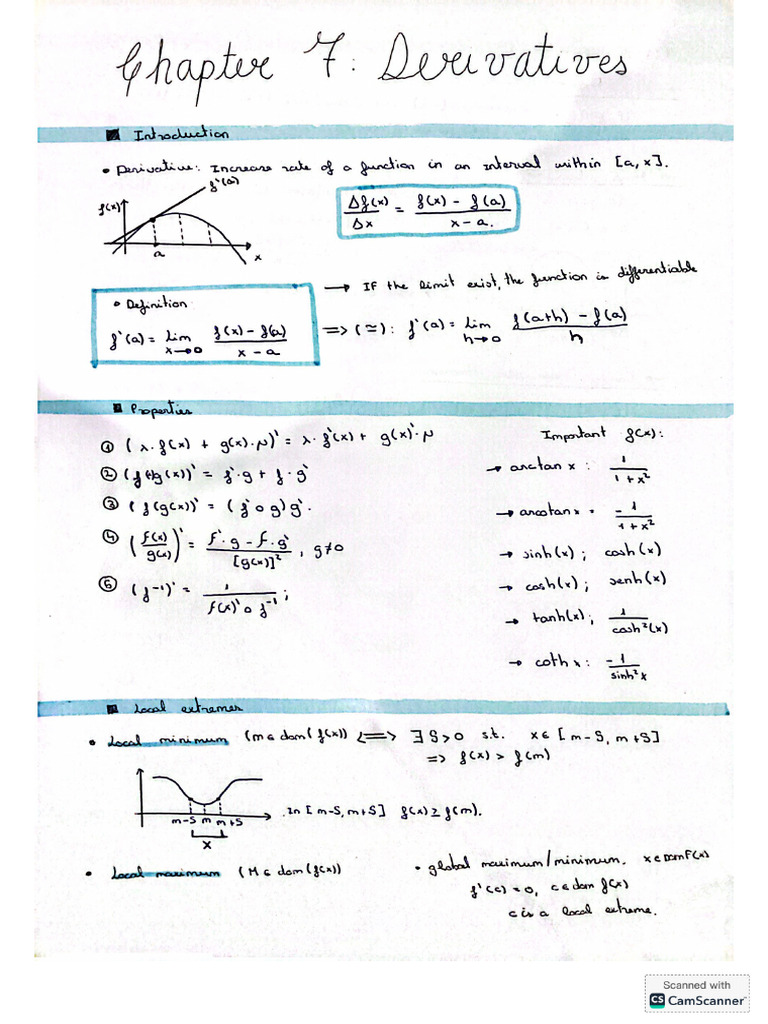 Chapter 7: Derivatives
Introduction
• Derivative: Increase rate of a function in an interval within [a, x].
f'(a)
f(x)
a
x
Δf(x)/Δx = (f(x) - f(a))/(x - a).
→ IF the limit exist, the function is differentiable
• Definition
f'(a) = lim x→0 (f(x) - f(a))/(x - a)
=> (≃): f'(a) = lim h→0 (f(a+h) - f(a))/h
Properties
① (λ·f(x) + g(x)·μ)' = λ·f'(x) + g(x)'·μ
② (f·g(x))' = f'·g + f·g'
③ (f(g(x))' = (f'∘g)g'.
④ (f(x)/g(x))' = (f'·g - f·g')/[g(x)]², g≠0
⑤ (f⁻¹)' = 1/(f(x)'∘f⁻¹);
Important f(x):
→ arctan x: 1/(1+x²)
→ arcotan x = -1/(1+x²)
→ sinh(x); cosh(x)
→ cosh(x); senh(x)
→ tanh(x); 1/cosh²(x)
→ coth x: -1/sinh²x
Local extremes
• Local minimum (m∈dom(f(x)) <=> ∃ S>0 s.t. x∈[m-S, m+S]
=> f(x) > f(m)
m-S m m+S
x
.in [m-S, m+S] f(x) ≥ f(m).
• Local maximum (M∈dom(f(x))
• global maximum/minimum. x∈Dom F(x)
f'(c) = 0, c∈dom f(x)
c is a local extreme.
Scanned with
CS CamScanner